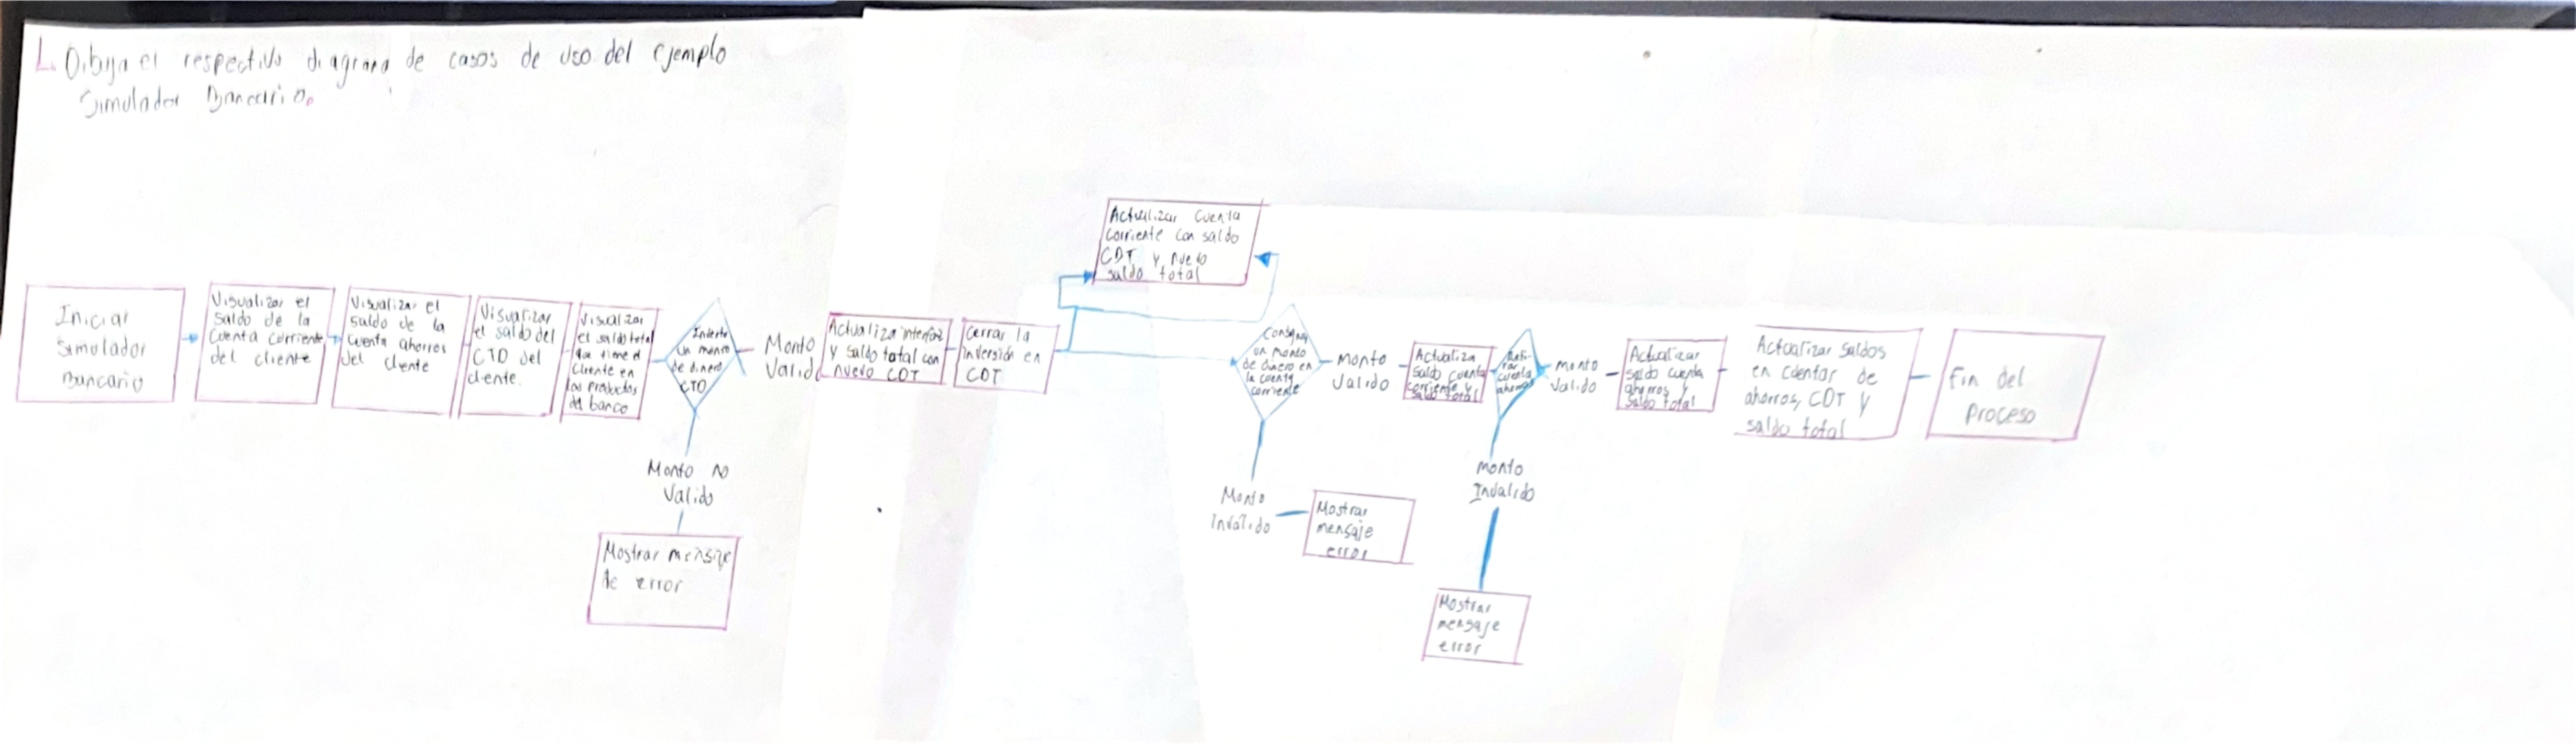 1. Dibuja el respectivo diagrama de casos de uso del ejemplo
Simulador Bancario.
Iniciar
Simulador
Bancario
Visualizar el
saldo de la
cuenta corriente
del cliente
Visualizar el
saldo de la
cuenta ahorros
del cliente
Visualizar
el saldo del
CTD del
cliente.
Visualizar
el saldo total
que tiene el
cliente en
los productos
del banco
Invierte
un monto
de dinero
CTD
Monto
Valido
Monto no
Valido
Mostrar mensaje
de error
Actualiza interfaz
y saldo total con
nuevo CDT
Cerrar la
inversión en
CDT
Actualizar cuenta
corriente con saldo
CDT y nuevo
saldo total
Consignar
un monto
de dinero en
la cuenta
corriente
monto
Valido
Monto
Inválido
Mostrar
mensaje
error
Actualiza
saldo cuenta
corriente y
saldo total
Reti-
rar
cuenta
ahorros
monto
Valido
monto
Invalido
Mostrar
mensaje
error
Actualizar
saldo cuenta
ahorros y
saldo total
Actualizar saldos
en cuentas de
ahorros, CDT y
saldo total
Fin del
proceso